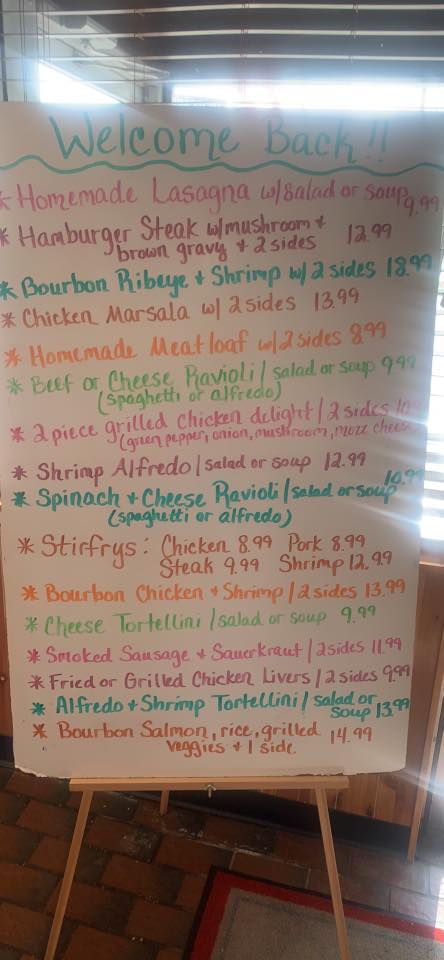 Welcome Back!!
* Homemade Lasagna w/salad or soup 9.99
* Hamburger Steak w/mushroom + 12.99
brown gravy + 2 sides
* Bourbon Ribeye + Shrimp w/ 2 sides 18.99
* Chicken Marsala w/ 2 sides 13.99
* Homemade Meatloaf w/2 sides 8.99
* Beef or Cheese Ravioli / salad or soup 9.99
(spaghetti or alfredo)
* 2 piece grilled Chicken delight / 2 sides
(green pepper, onion, mushroom, mozz cheese
* Shrimp Alfredo / salad or soup 12.99
* Spinach + Cheese Ravioli / salad or soup 10.99
(spaghetti or alfredo)
* Stirfrys: Chicken 8.99 Pork 8.99
Steak 9.99 Shrimp 12.99
* Bourbon Chicken + Shrimp / 2 sides 13.99
* Cheese Tortellini / salad or soup 9.99
* Smoked Sausage + Sauerkraut / 2 sides 11.99
* Fried or Grilled Chicken Livers / 2 sides 9.99
* Alfredo + Shrimp Tortellini / salad or
soup 13.99
* Bourbon Salmon, rice, grilled 14.99
veggies + 1 side.